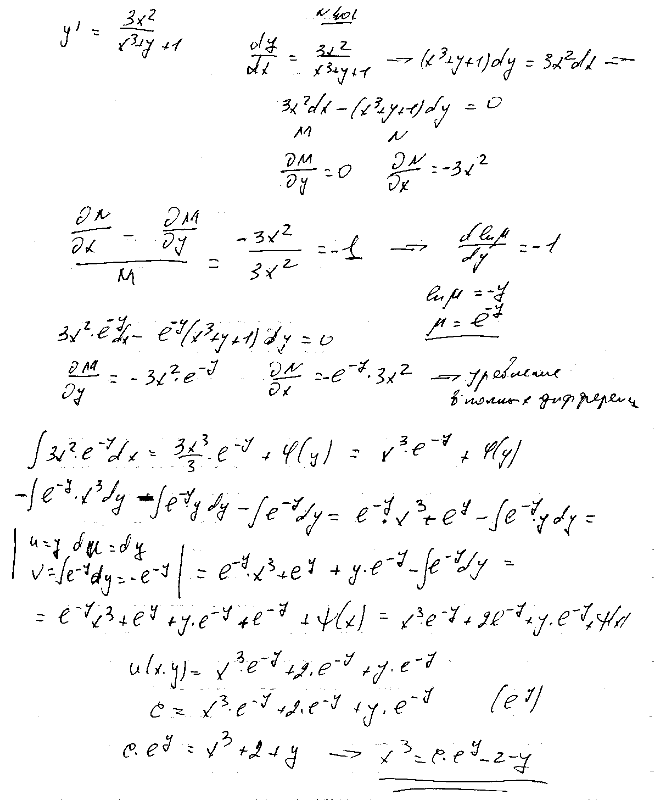 N 401
y' = 3x²/(x³+y+1)
dy/dx = 3x²/(x³+y+1) → (x³+y+1)dy = 3x²dx →
3x²dx − (x³+y+1)dy = 0
M N
∂M/∂y = 0 ∂N/∂x = −3x²
(∂N/∂x − ∂M/∂y)/M = −3x²/3x² = −1 → d ln μ/dy = −1
ln μ = −y
μ = e^(−y)
3x²·e^(−y)dx − e^(−y)(x³+y+1)dy = 0
∂M/∂y = −3x²·e^(−y) ∂N/∂x = −e^(−y)·3x² → уравнение
в полных дифференц
∫3x²·e^(−y)dx = 3x³/3·e^(−y) + φ(y) = x³·e^(−y) + φ(y)
−∫e^(−y)·x³dy − ∫e^(−y)y dy − ∫e^(−y)dy = e^(−y)·x³ + e^(−y) − ∫e^(−y)·y dy =
| u=y du=dy
v=∫e^(−y)dy=−e^(−y) | = e^(−y)·x³ + e^(−y) + y·e^(−y) − ∫e^(−y)dy =
= e^(−y)x³ + e^(−y) + y·e^(−y) + e^(−y) + ψ(x) = x³e^(−y) + 2e^(−y) + y·e^(−y) + ψ(x)
u(x,y) = x³e^(−y) + 2·e^(−y) + y·e^(−y)
c = x³·e^(−y) + 2·e^(−y) + y·e^(−y) (e^y)
c·e^y = x³ + 2 + y → x³ = c·e^y − 2 − y